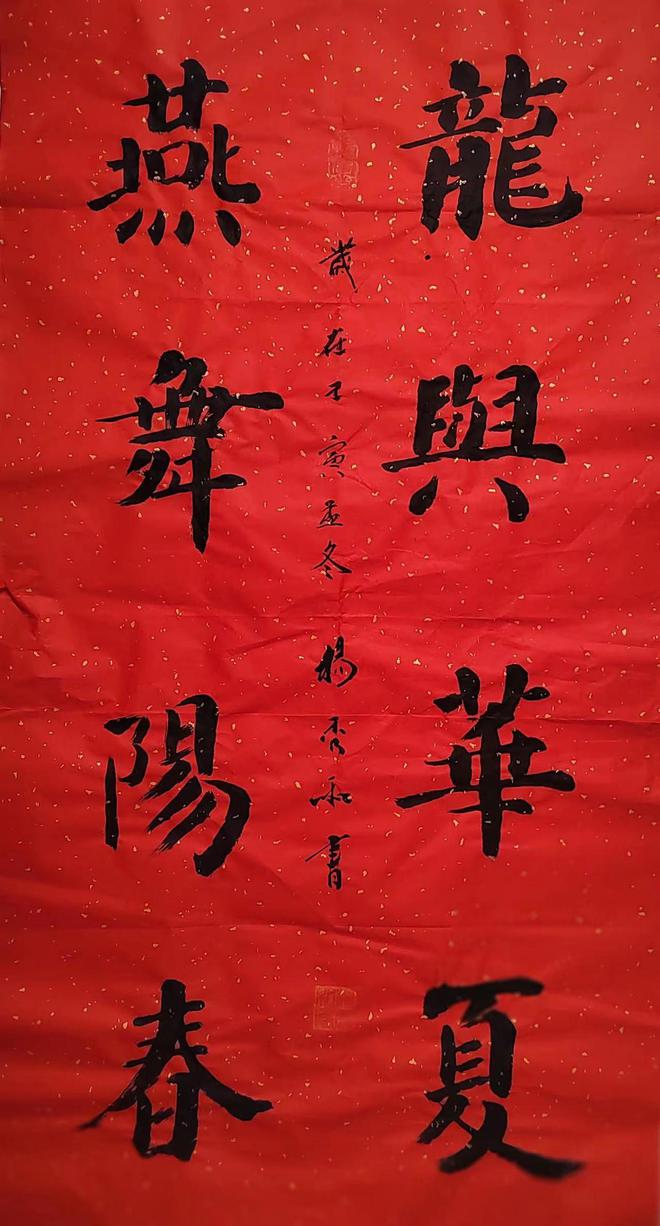 龍與華夏
燕舞陽春
歲在壬寅孟冬楊秀和書